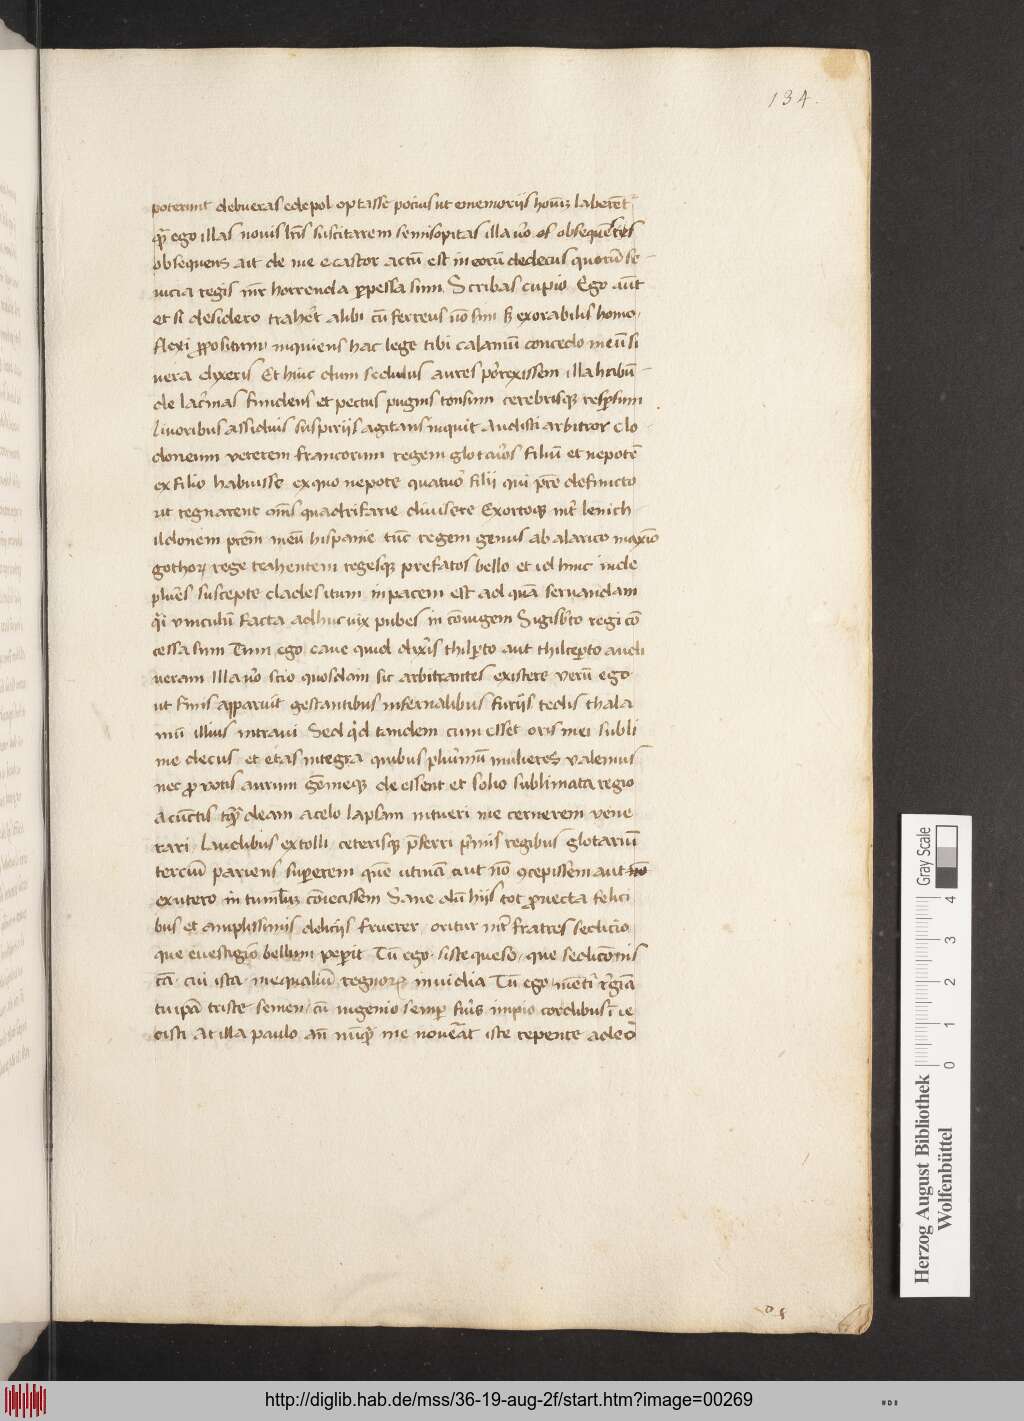 134.
poterunt debueras edepol optasse pocius ut ememoriis hoīuʒ laberēt̄
qꝫ̄ ego illas novis lr̄is suscitarem semisopitas illa v̄o os obsequētes
obsequens ait de me ecastor actū est in eorū dedecus quorū se-
vicia regis mr̄ horrenda ꝑpessa sum. Scribas cupio Ego aut̄
et si desidero trahēt̄ alibi cū ferreus nō sim sꝫ exorabilis homo,
flexi ꝓpositum, inquiens hac lege tibi calamū concedo meū si
vera dixeris. Et hinc dum sedulus aures porexissem illa hr̄ibū-
de lac̄mas fundens et pectus pugnis tonsum cerebrisqꝫ respsum
livoribus assiduis suspiriis agitans inquit Audisti arbitror clo-
doneum veterem francorum regem glotarios filiū et nepotē
ex filio habuisse ex quo nepote quatuor filii qui pr̄e defuncto
ut regnarent om̄s quadrifarie divisere Exortoqꝫ int̄ lenich-
ildonem pr̄em meū hispanie tūc regem genus ab alarico maxīo
gothoꝝ rege trahentem regesqꝫ prefatos bello et id hinc inde
plures suscepte clades itum in pacem est ad quā servandam
q̄i vinculū facta adhuc vix pubes in cōiugem Sigisbto regi cō
cessa sum Tum ego cave quid dixeris thilpto aut thilcepto audi
veram Illa v̄o scio quosdam sic arbitrantes existere verū ego
ut funis apparuit gestantibus infernalibus furiis tedis thala
mū illius intravi Sed q̇d tandem cum esset oris mei subli
me decus et etas integra quibus plurimū mulieres valemus
nec ꝓ votis aurum gēmeqꝫ deessent et solio sublimata regio
a cūctis tqꝫ̄ deam a celo lapsam intueri me cernerem vene
rari. laudibus extolli ceterisqꝫ p̄ferri p̄mis regibus glotariū
terciū pariens superem quē utinā aut nō ꝯcepissem aut nō
ex utero in tumuluʒ cōiecissem Sane dū hiis tot ꝓvecta felici
bus et amplissimis deliciis fruerer oritur int̄ fratres sedicio
que evestigio bellum pepit Tū ego. siste queso, que sedicōnis
cā. cui ista. inequaliū regnoꝝ invidia Tū ego. mētiris r̄gīa
tu ip̄a triste semen, cū ingenio semꝑ fuis impio cordibus īie
cisti At illa paulo añ nūqꝫ̄ me noverat iste repente adeo
Herzog August Bibliothek
Wolfenbüttel
Gray Scale
0 1 2 3 4
http://diglib.hab.de/mss/36-19-aug-2f/start.htm?image=00269